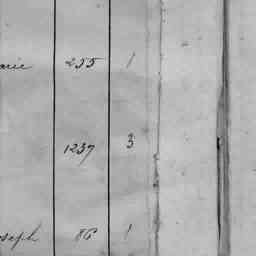 arie 255 1
1237 3
oseph 86 1